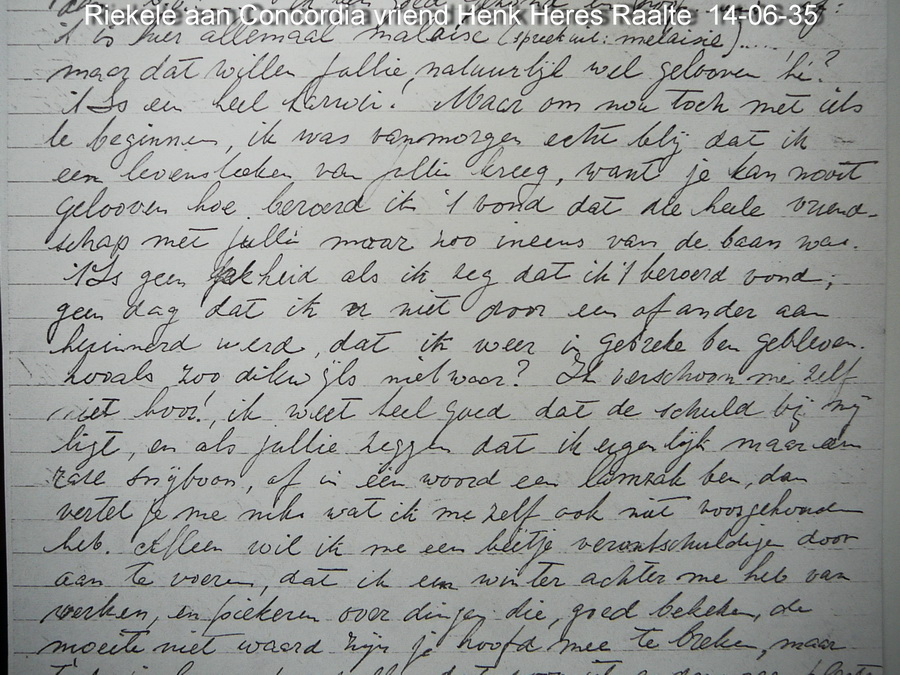 Riekele aan Concordia vriend Henk Heres Raalte 14-06-35
't is hier allemaal malaise (spreek uit: melaisie).....
maar dat willen jullie natuurlijk wel gelooven hè?
't Is een heel karwei! Maar om nou toch met iets
te beginnen, ik was vanmorgen echt blij dat ik
een levensteeken van jullie kreeg, want je kan nooit
gelooven hoe beroerd ik 't vond dat die heele vriend-
schap met jullie maar zoo ineens van de baan was.
't Is geen gekheid als ik zeg dat ik 't beroerd vond;
geen dag dat ik er niet door een of ander aan
herinnerd werd, dat ik weer in gebreke ben gebleven.
zooals zoo dikwijls niet waar? Ik verschoon me zelf
niet hoor!, ik weet heel goed dat de schuld bij mij
ligt, en als jullie zeggen dat ik eigenlijk maar een
rare snijboon, of in één woord een lamzak ben, dan
vertel je me niks wat ik me zelf ook niet voorgehouden
heb. Alleen wil ik me een beetje verontschuldigen door
aan te voeren, dat ik een winter achter me heb van
werken, en piekeren over dingen die, goed bekeken, de
moeite niet waard zijn je hoofd mee te breken, maar